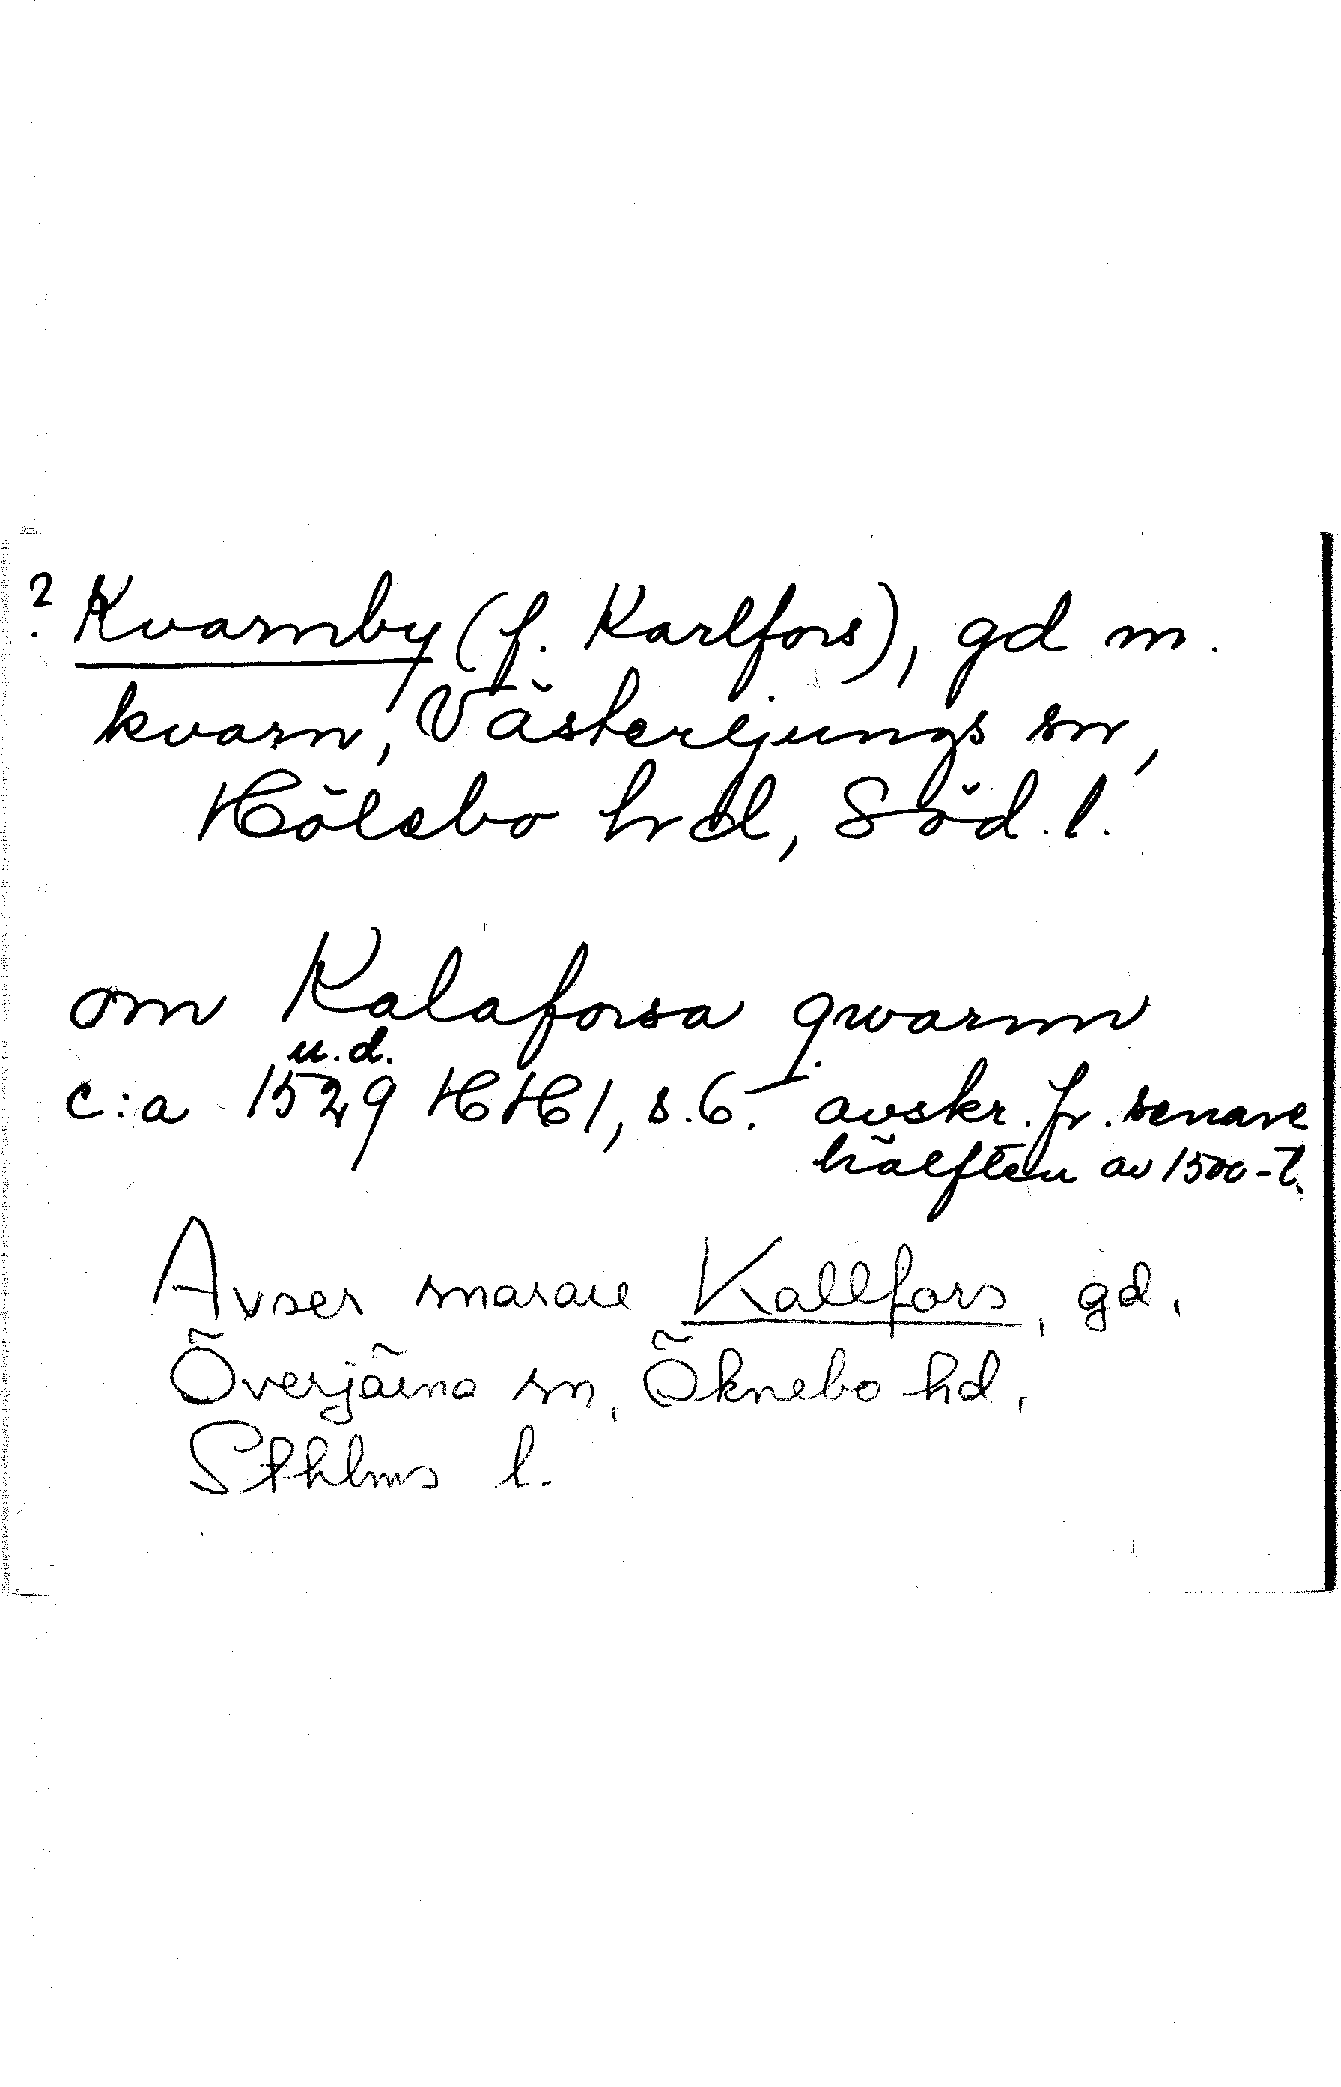 ? Kvarnby (f. Karlfors), gd m.
kvarn, Västerljungs sn,
Hölebo hrd, Söd. l.
om Kalaforsa qwarnn
u.d.
c:a 1529 HH 1, s. 6. avskr. fr. senare
hälften av 1500-t.
Avser snarare Kallfors, gd,
Överjärna sn, Öknebo hd,
Sthlms l.